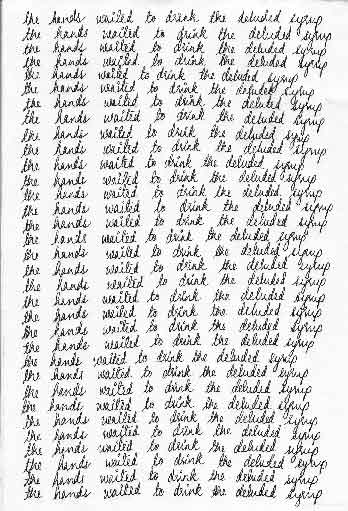 the hands waited to drink the deluded syrup
the hands waited to drink the deluded syrup
the hands waited to drink the deluded syrup
the hands waited to drink the deluded syrup
the hands waited to drink the deluded syrup
the hands waited to drink the deluded syrup
the hands waited to drink the deluded syrup
the hands waited to drink the deluded syrup
the hands waited to drink the deluded syrup
the hands waited to drink the deluded syrup
the hands waited to drink the deluded syrup
the hands waited to drink the deluded syrup
the hands waited to drink the deluded syrup
the hands waited to drink the deluded syrup
the hands waited to drink the deluded syrup
the hands waited to drink the deluded syrup
the hands waited to drink the deluded syrup
the hands waited to drink the deluded syrup
the hands waited to drink the deluded syrup
the hands waited to drink the deluded syrup
the hands waited to drink the deluded syrup
the hands waited to drink the deluded syrup
the hands waited to drink the deluded syrup
the hands waited to drink the deluded syrup
the hands waited to drink the deluded syrup
the hands waited to drink the deluded syrup
the hands waited to drink the deluded syrup
the hands waited to drink the deluded syrup
the hands waited to drink the deluded syrup
the hands waited to drink the deluded syrup
the hands waited to drink the deluded syrup
the hands waited to drink the deluded syrup
the hands waited to drink the deluded syrup